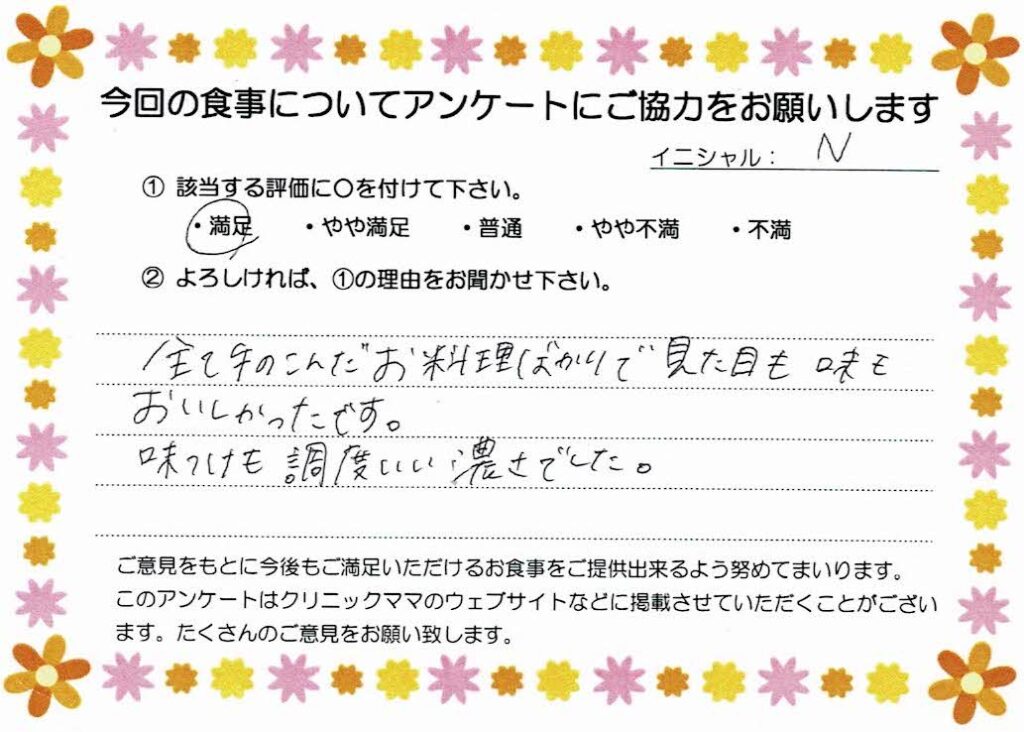 今回の食事についてアンケートにご協力をお願いします
イニシャル： N
① 該当する評価に〇を付けて下さい。
・満足 ・やや満足 ・普通 ・やや不満 ・不満
② よろしければ、①の理由をお聞かせ下さい。
全て手のこんだお料理ばかりで見た目も味も
おいしかったです。
味つけも調度いい濃さでした。
ご意見をもとに今後もご満足いただけるお食事をご提供出来るよう努めてまいります。
このアンケートはクリニックママのウェブサイトなどに掲載させていただくことがござい
ます。たくさんのご意見をお願い致します。